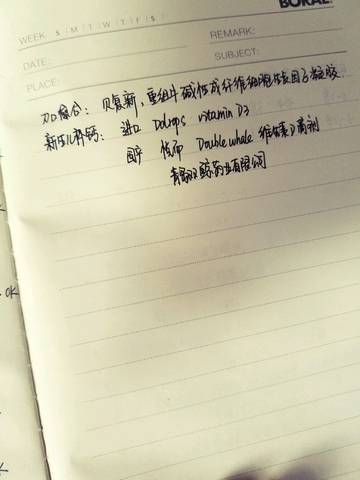 BORAL
WEEK S / M / T / W / T / F / S /
REMARK:
DATE:
SUBJECT:
PLACE:
加愈合：贝复新，重组牛碱性成纤维细胞生长因子凝胶
新生儿补钙：进口 Ddrops vitamin D3
国产 悦而 Doublewhale 维生素D滴剂
青岛双鲸药业有限公司
OK